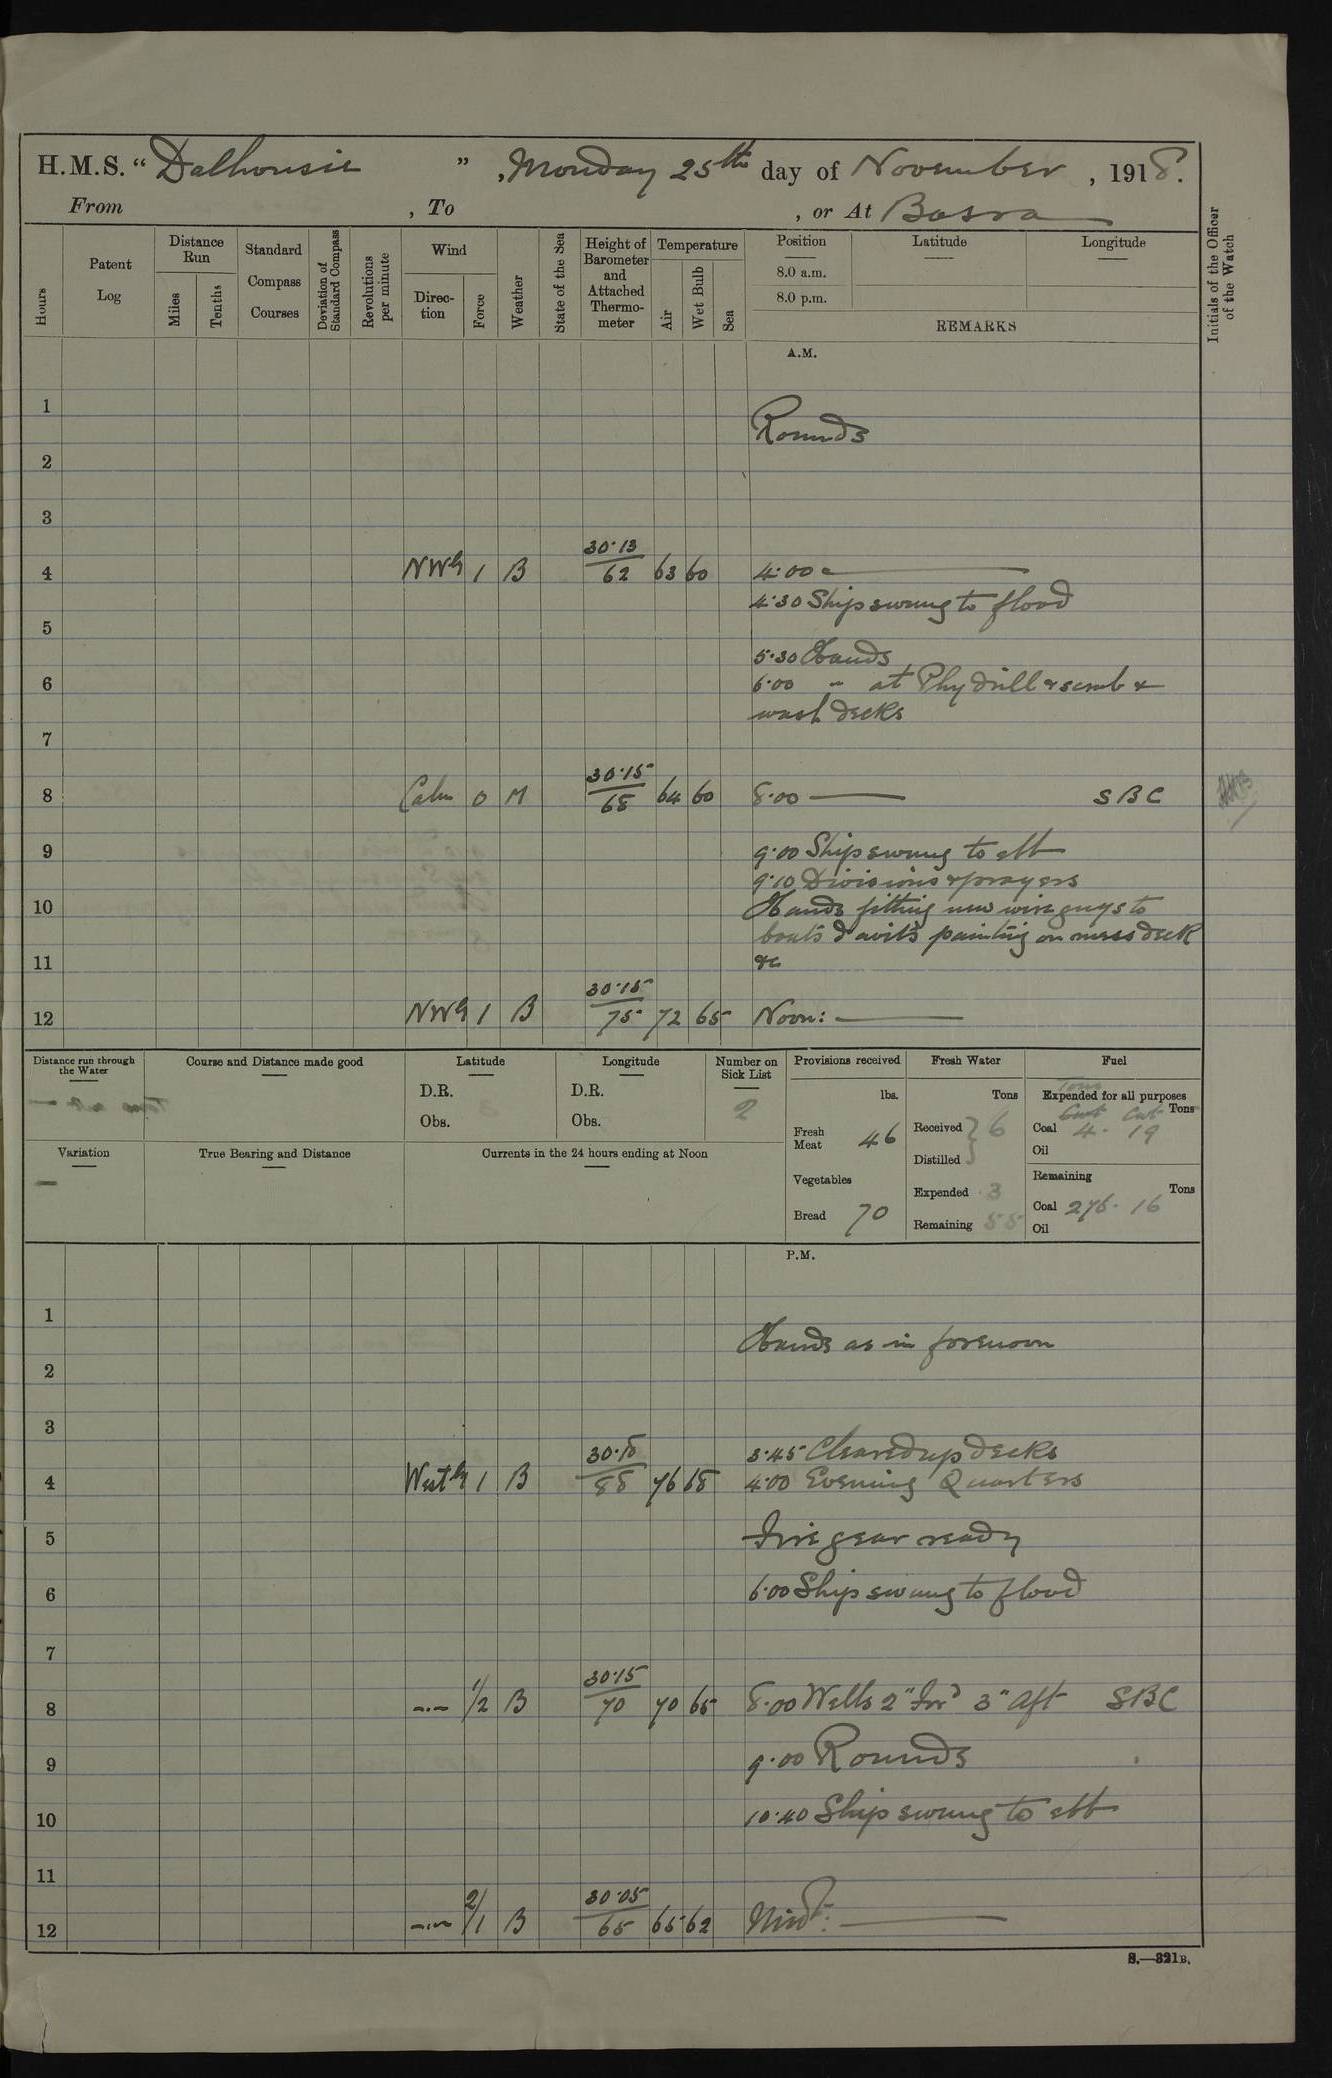 H.M.S. “ Dalhousie ” , Monday 25th day of November , 1918.
From , To , or At Basra
Hours
Patent Log
Distance Run
Miles
Tenths
Standard Compass Courses
Deviation of Standard Compass
Revolutions per minute
Wind
Direc-tion
Force
Weather
State of the Sea
Height of Barometer and Attached Thermo-meter
Temperature
Air
Wet Bulb
Sea
Position
Latitude
Longitude
8.0 a.m.
8.0 p.m.
REMARKS
Initials of the Officer of the Watch
A.M.
1
Rounds
2
3
30.13
4 NWly 1 B 62 63 60 4.00
4.30 Ship swung to flood
5
5.30 Hands
6 6.00 " at Phy drill & scrub &
wash decks
7
30.15
8 Calm 0 M 68 64 60 8.00 SBC
9 9.00 Ship swung to ebb
9.10 Divisions & prayers
10 Hands fitting new wire guys to
boats davits painting on mess deck
11 &c
30.15
12 NWly 1 B 75 72 65 Noon:
Distance run through the Water
Course and Distance made good
Latitude
D.R.
Obs.
Longitude
D.R.
Obs.
Number on Sick List
2
Provisions received
lbs.
Fresh Meat 46
Vegetables
Bread 70
Fresh Water
Tons
Received } 6
Distilled
Expended 3
Remaining 55
Fuel
Tons
Expended for all purposes
Cwt Tons
Coal 4. 19
Oil
Remaining
Tons
Coal 276. 16
Oil
Variation
True Bearing and Distance
Currents in the 24 hours ending at Noon
P.M.
1
Hands as in forenoon
2
3
3.45 Cleared up decks
4 Westly 1 B 88 76 68 4.00 Evening Quarters
5 Fire gear ready
6 6.00 Ship swung to flood
7
30.15
8 -"- 1/2 B 70 70 65 8.00 Wells 2" For'd 3" Aft SBC
9 9.00 Rounds
10 10.40 Ship swung to ebb
11
30.05
12 -"- 2/1 B 65 65 62 Midt:
S.—321B.